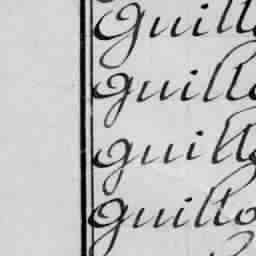 Guillo
guillo
guillo
guillo